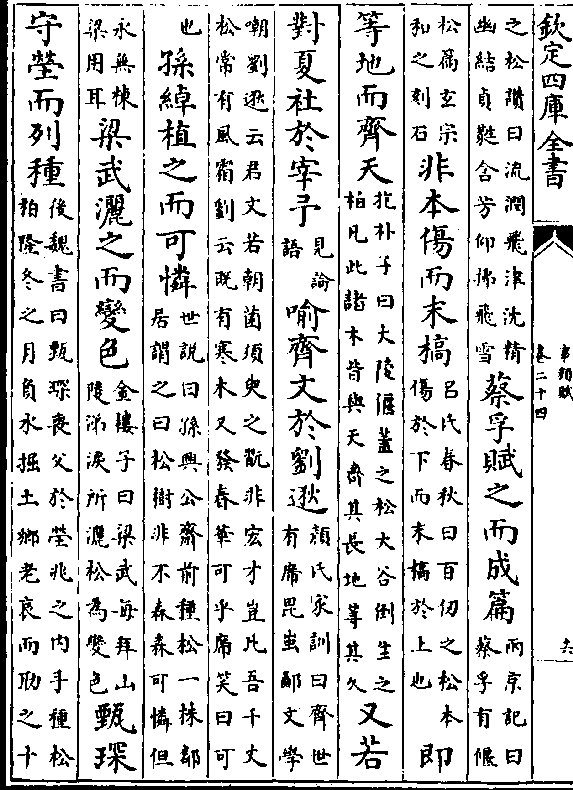 欽定四庫全書
事類賦
卷二十四
六
之松讚曰流潤飛津沈精
幽結貞蕤含芳仰拂飛雪
蔡孚賦之而成篇
兩京記曰
蔡孚有偃
松為玄宗
和之刻石
非本傷而末槁
吕氏春秋曰百仞之松本
傷於下而末槁於上也
即
等地而齊天
抱朴子曰大陵偃蓋之松大谷倒生之
柏凡此諸木皆與天齊其長地等其久
又若
對夏社於宰予
見論
語
喻齊文於劉逖
顔氏家訓曰齊世
有席毘虽鄙文學
嘲劉逖云君文若朝菌須臾之翫非宏才豈比吾千丈
松常有風霜劉云既有寒木又發春華可乎席笑曰可
也
孫綽植之而可憐
世説曰孫興公齋前種松一株鄰
居謂之曰松樹非不森森可憐但
永無棟
梁用耳
梁武灑之而變色
金樓子曰梁武每拜山
陵涕淚所灑松為變色
甄琛
守塋而列種
後魏書曰甄琛喪父於塋兆之内手種松
柏隆冬之月負水掘土鄉老哀而助之十